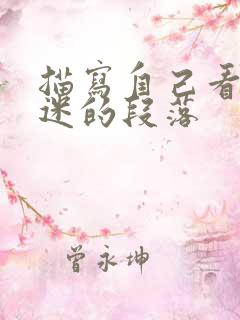 描寫自己看
迷的段落
曾永坤